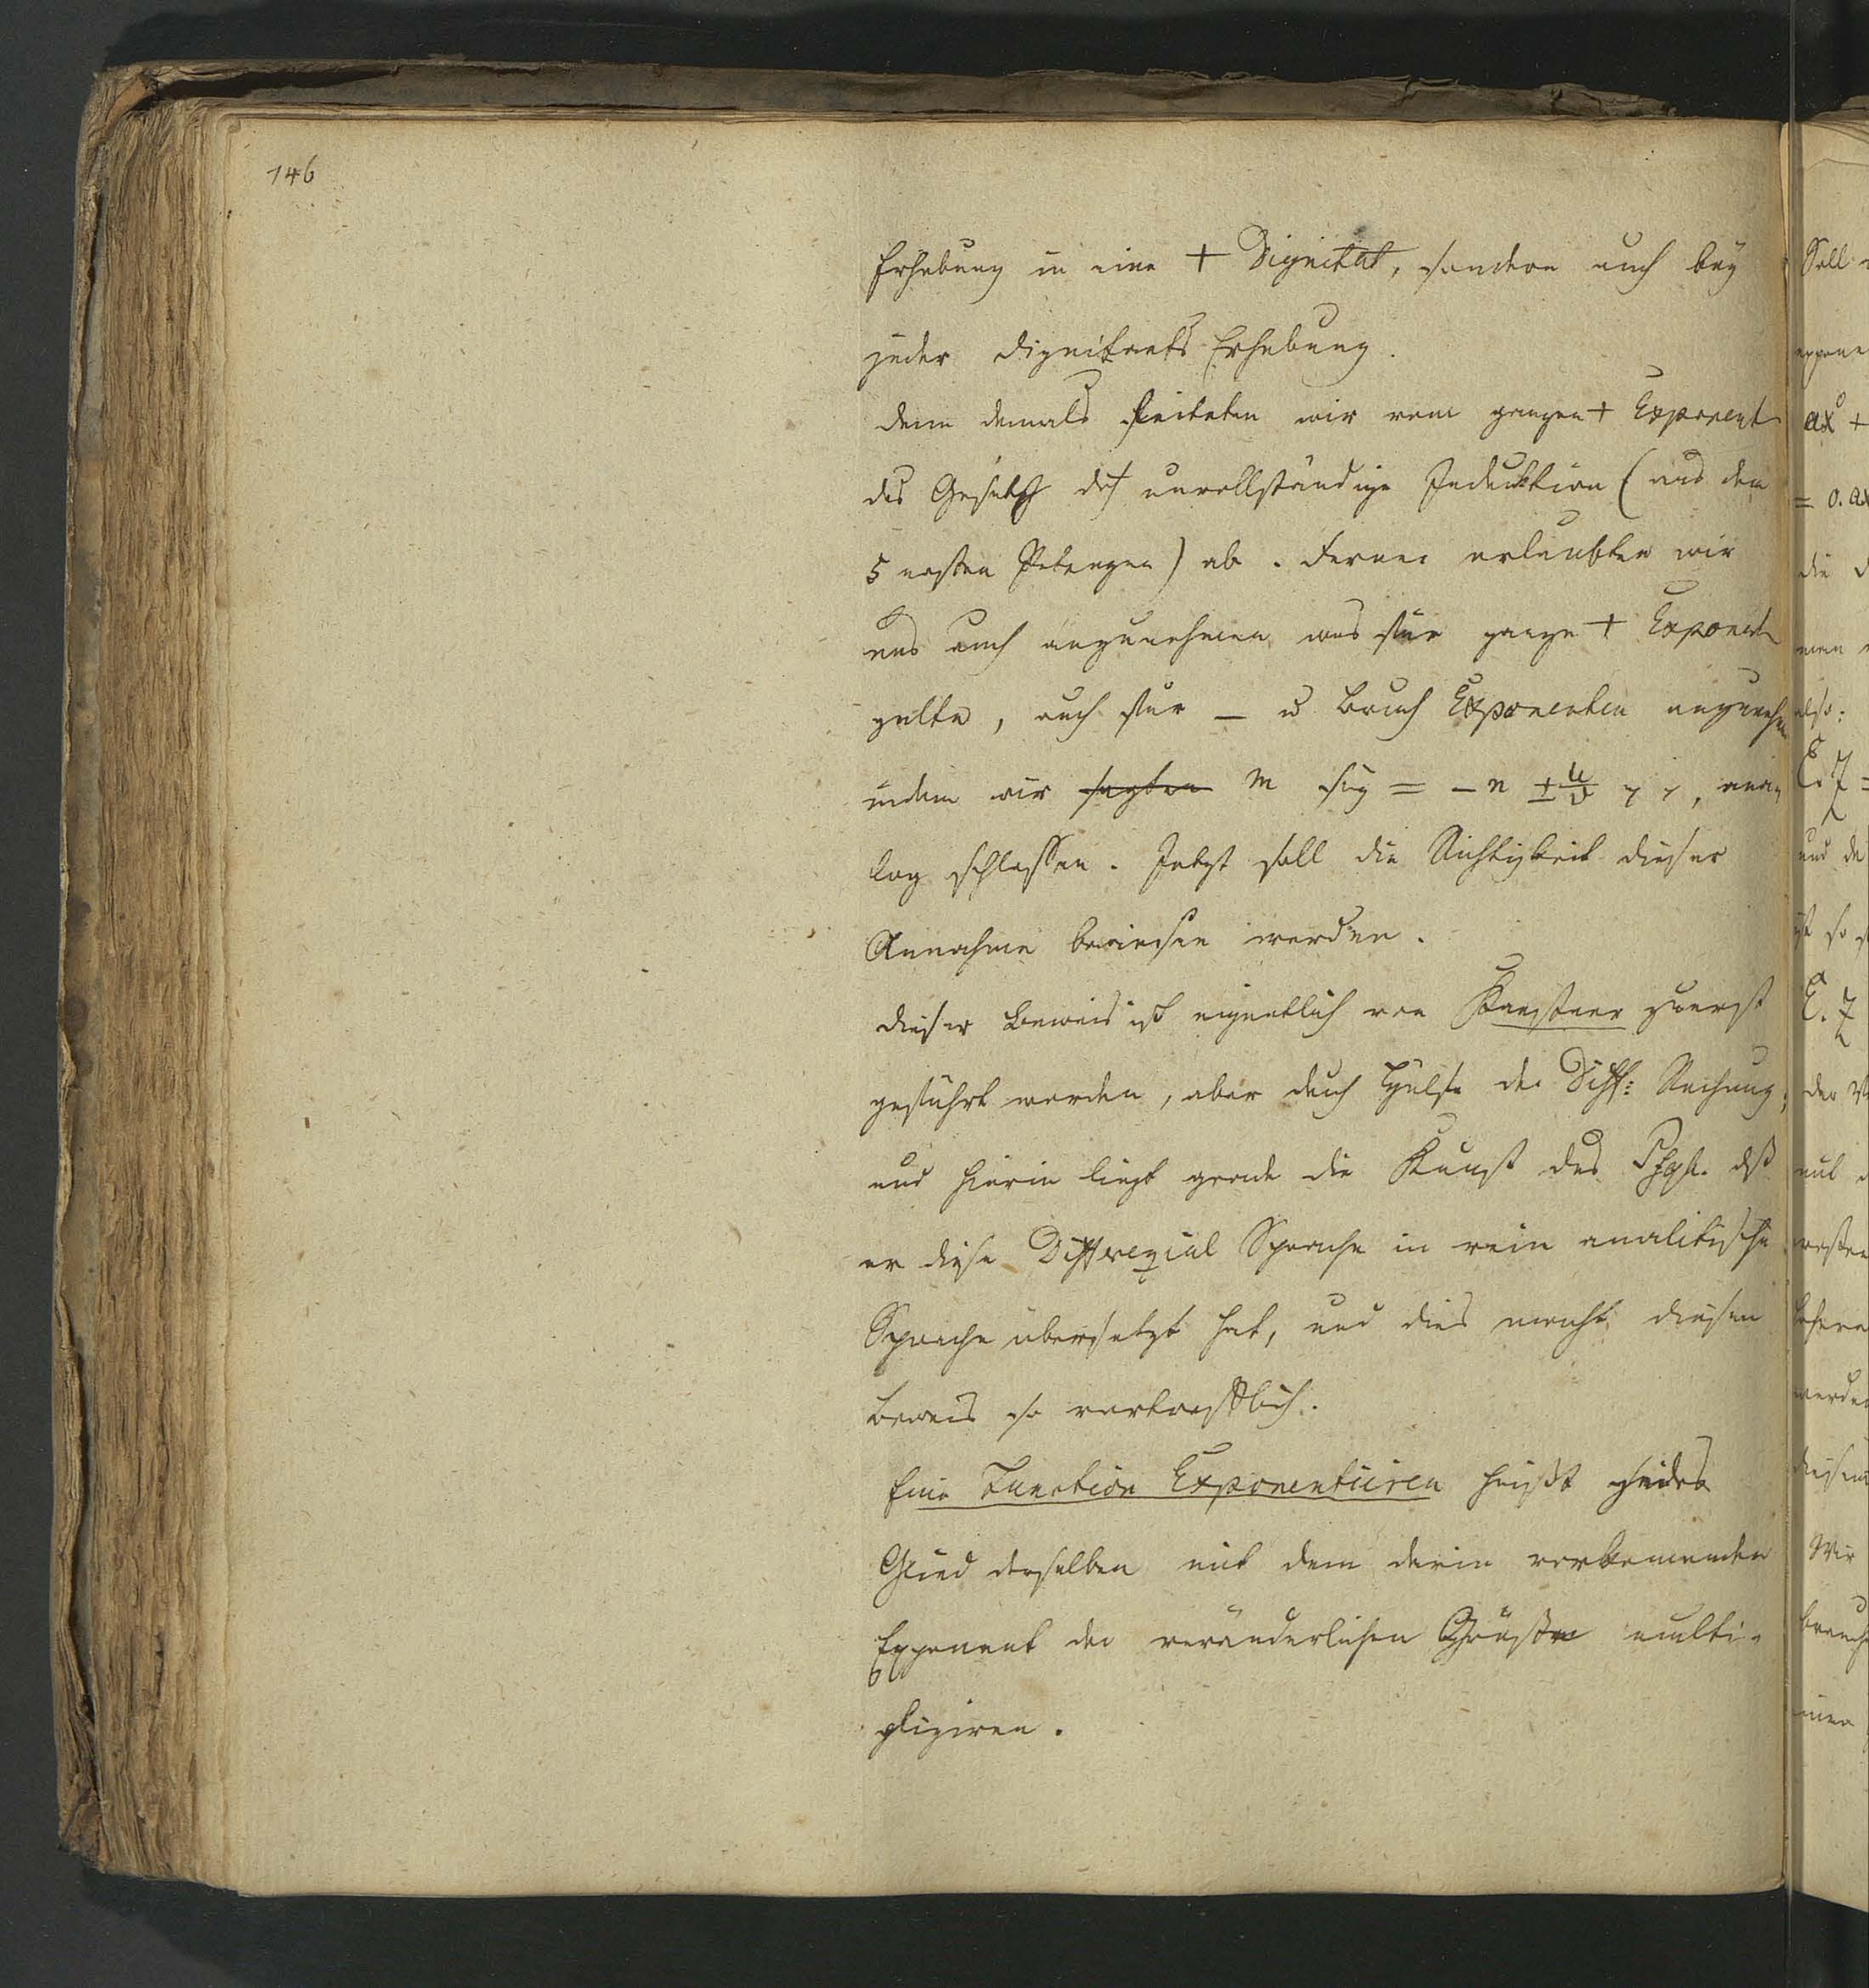 146
Erhebung in eine + Dignität, sondern auch bey
jeder Dignitaets Erhebung.
Denn damals leiteten wir vom ganzen + Exponent
das Gesetz dch unvollständige Induktion (aus den
5 ersten Potenzen) ab. Ferner erlaubten wir
uns auch anzunehmen was für ganze + Exponent
gelte, auch für – u Bruch Exponenten anzunehmen
indem wir sagten m sey = – n ± u/v, ana-
log schlossen. Jetzt soll die Richtigkeit dieser
Annahme bewiesen werden.
Dieser Beweis ist eigentlich von Kaestner zuerst
geführt worden, aber durch Hülfe der Diff: Rechnung;
und hierin liegt gerade die Kunst des dß
er diese Differezial Sprache in rein analitische
Sprache übersetzt hat, und dies macht diesen
Beweis so vortrefflich.
Eine Function Exponentiiren heißt jedes
Glied derselben mit dem darin vorkomenden
Exponent der veränderlichen Größe multi-
pliziren.
Soll
expone
ax⁰ +
= 0. ax
die
man
also:
und de
ist so
der
mit
ersten
werden
diesem
Wir
brauch